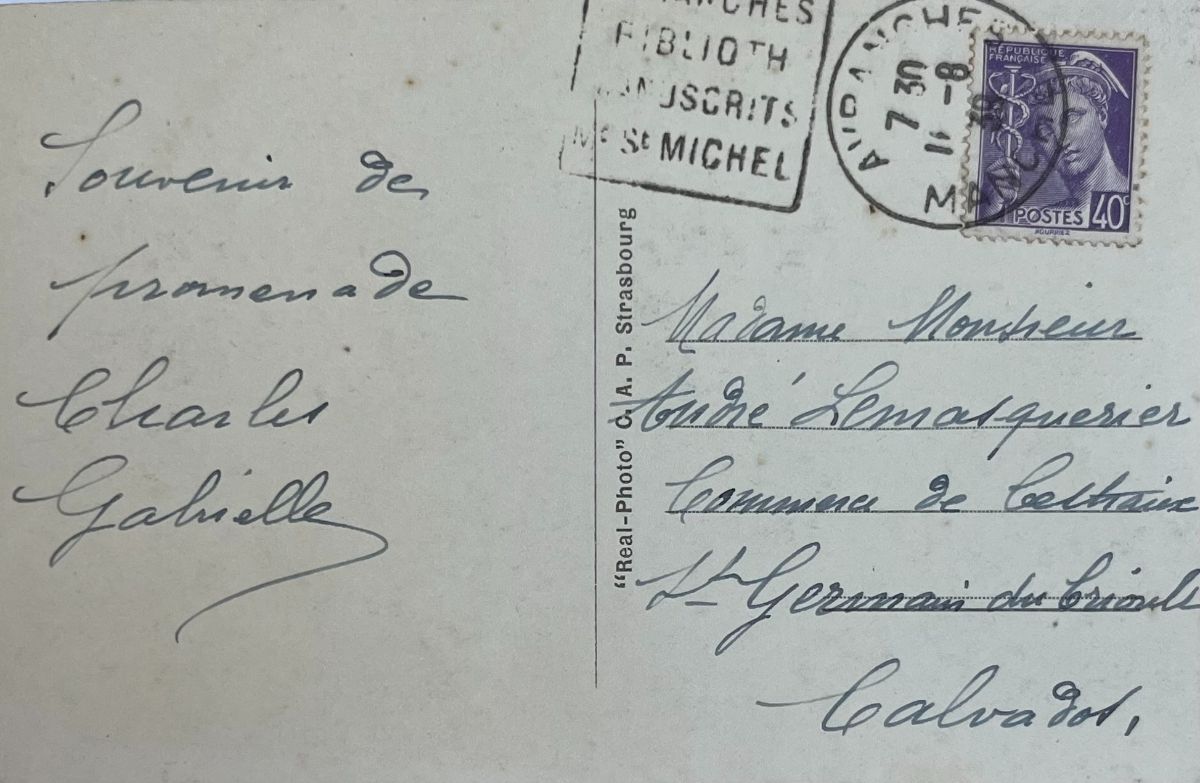 Souvenir de
promenade
Charles
Gabrielle
"Real-Photo" C. A. P. Strasbourg
BIBLIOTH
MANUSCRITS
Mt St MICHEL
AVRANCHES
7 30
11 -8
MANCHE
RÉPUBLIQUE
FRANÇAISE
POSTES
40c
HOURRIEZ
Madame Monsieur
André Lemasquerier
Commerce de
St Germain du Crioult
Calvados.